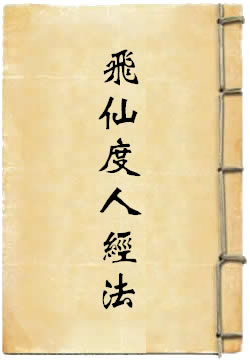 飛仙度人經法